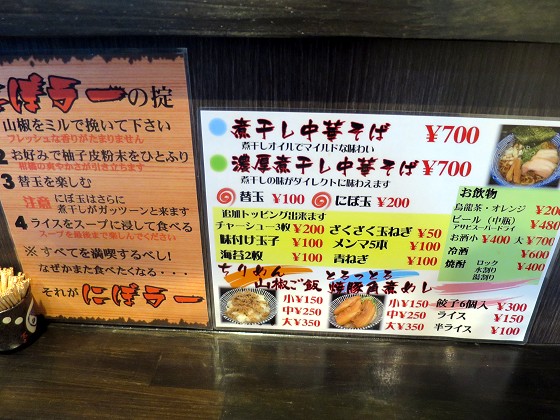 にぼラーの掟
山椒をミルで挽いて下さい
フレッシュな香りがたまりません
2 お好みで柚子皮粉末をひとふり
柑橘の爽やかさが引き立ちます
3 替玉を楽しむ
注意 にぼ玉はさらに
煮干しがガッツーンと来ます
4 ライスをスープに浸して食べる
スープを最後まで楽しんでください
※ すべてを満喫するべし!
なぜかまた食べたくなる・・
それが にぼラー
煮干し中華そば ¥700
煮干しオイルでマイルドな味わい
濃厚煮干し中華そば ¥700
煮干しの味がダイレクトに味わえます
替玉 ¥100 にぼ玉 ¥200
追加トッピング出来ます
チャーシュー3枚 ¥200 ざくざく玉ねぎ ¥50
味付け玉子 ¥100 メンマ5本 ¥100
海苔2枚 ¥100 青ねぎ ¥100
ちりめん山椒ご飯
小¥150
中¥250
大¥350
とろっとろ焼豚角煮めし
小¥150
中¥250
大¥350
餃子6個入 ¥300
ライス ¥150
半ライス ¥100
お飲物
烏龍茶・オレンジ ¥200
ビール(中瓶) ¥480
アサヒスーパードライ
お酒小 ¥400 大 ¥700
冷酒 ¥600
焼酎 ロック 水割り 湯割り ¥400